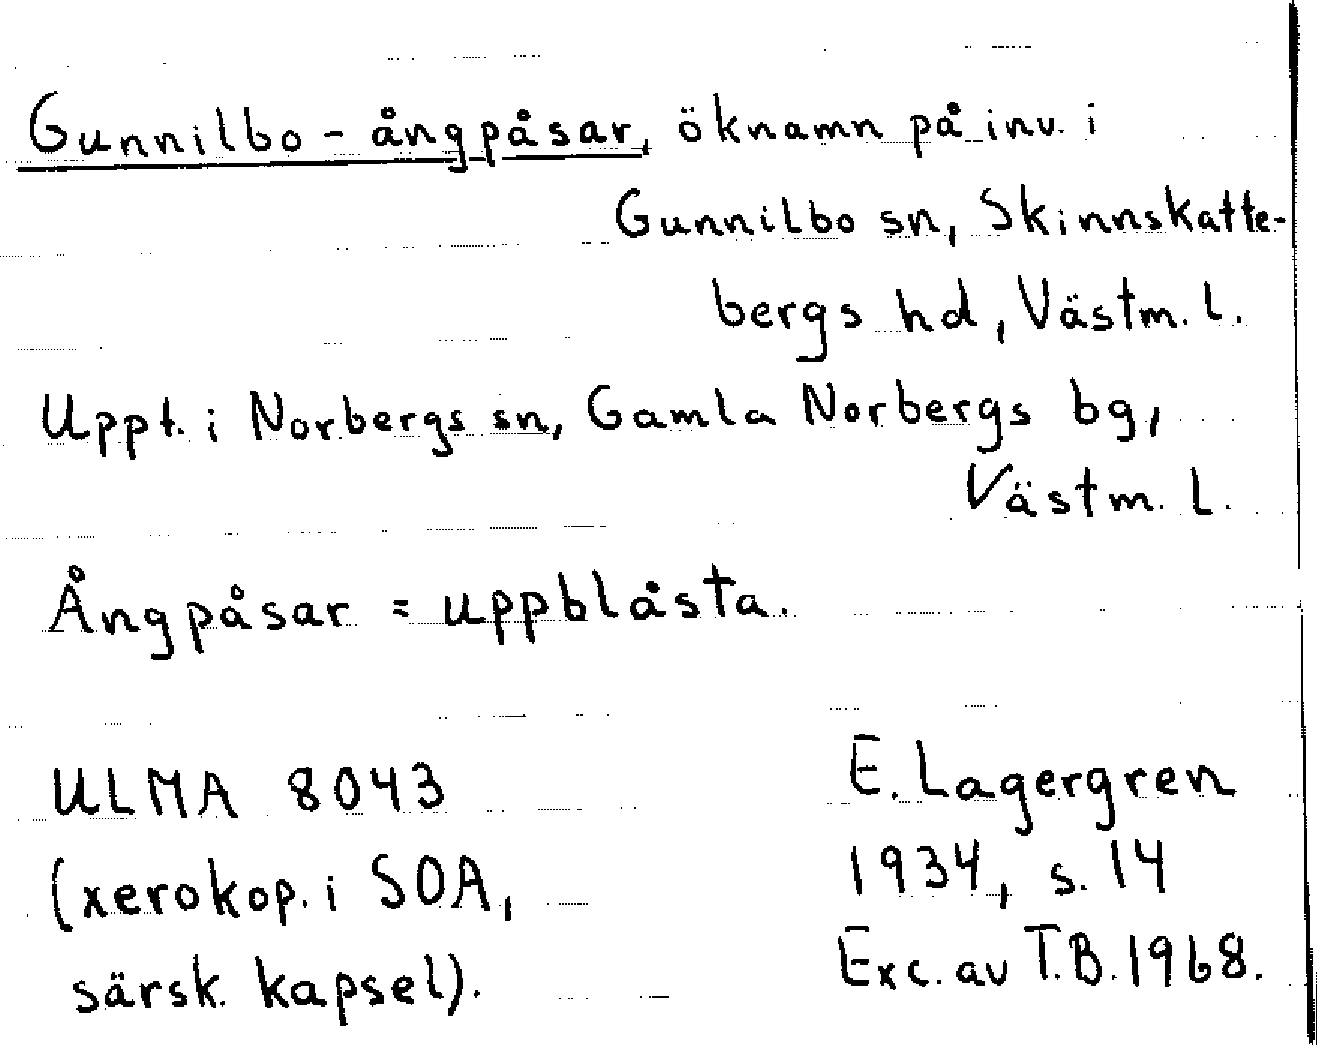 Gunnilbo-ångpåsar, öknamn på inv. i
Gunnilbo sn, Skinnskatte-
bergs hd, Västm. l.
Uppt. i Norbergs sn, Gamla Norbergs bg,
Västm. l.
Ångpåsar = uppblåsta.
ULMA 8043
(xerokop. i SOA,
särsk. kapsel).
E. Lagergren
1934, s. 14
Exc. av T.B. 1968.